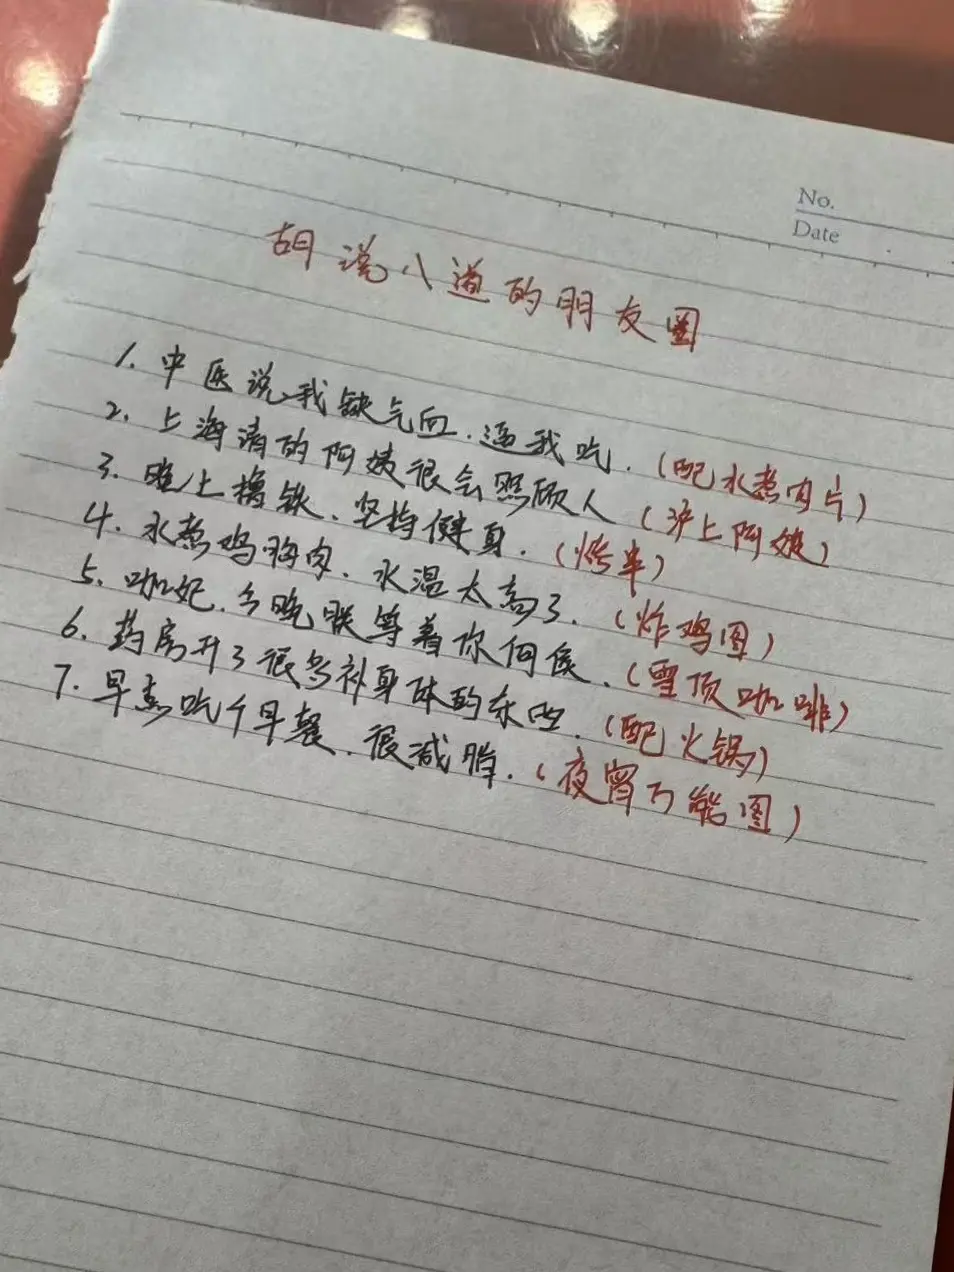 No.
Date
胡说八道的朋友圈
1. 中医说我缺气血.逼我吃.(配水煮肉片)
2. 上海请的阿姨很会照顾人(沪上阿姨)
3. 晚上撸铁.坚持健身.(烤串)
4. 水煮鸡胸肉.水温太高了.(炸鸡图)
5. 咖妃.今晚朕等着你侍候.(雪顶咖啡)
6. 药房开了很多补身体的东西.(配火锅)
7. 早点吃个早餐.很减脂.(夜宵万能图)